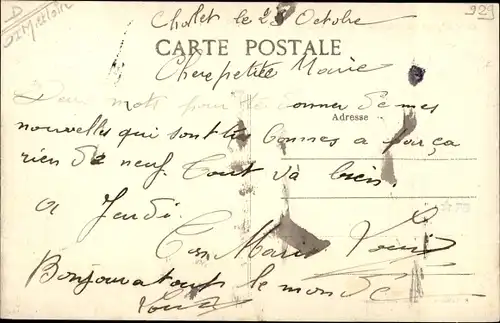 Cholet le 28 Octobre
929
CARTE POSTALE
Chere petite Marie
Deux mots pour te donner de mes
Adresse
nouvelles qui sont tres bonnes a par ça
rien de neuf. Tout va bien.
a Jeudi
Ton Mari
Bonjour a tout le monde